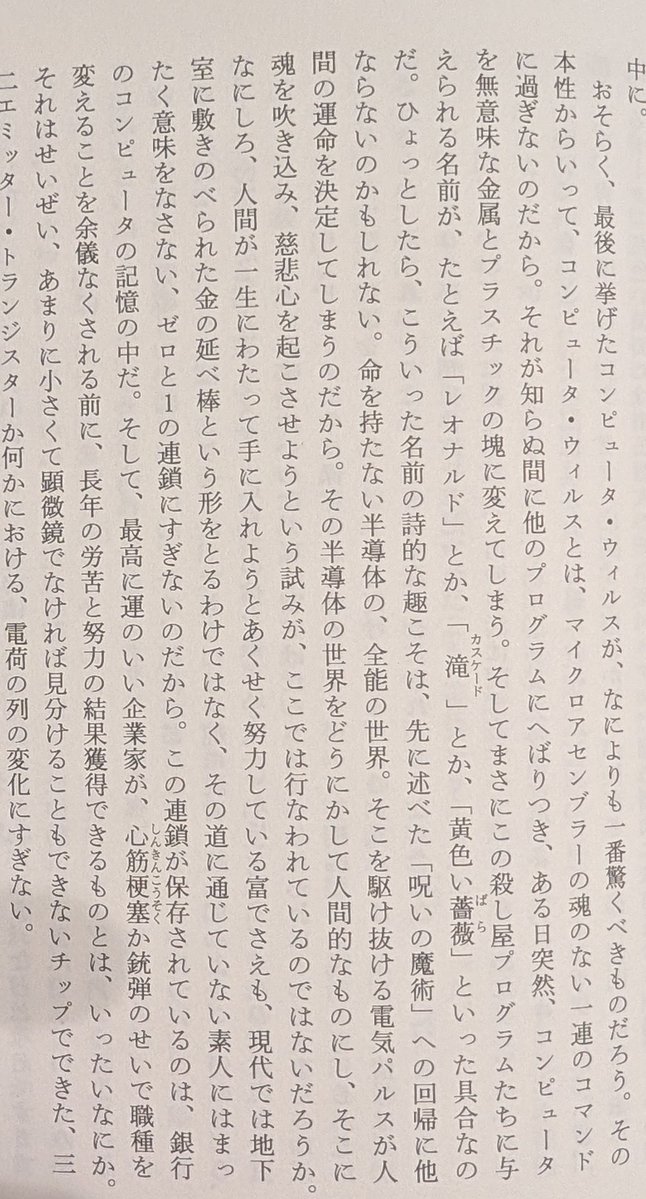 中に。
おそらく、最後に挙げたコンピュータ・ウィルスが、なによりも一番驚くべきものだろう。その
本性からいって、コンピュータ・ウィルスとは、マイクロアセンブラーの魂のない一連のコマンド
に過ぎないのだから。それが知らぬ間に他のプログラムにへばりつき、ある日突然、コンピュータ
を無意味な金属とプラスチックの塊に変えてしまう。そしてまさにこの殺し屋プログラムたちに与
えられる名前が、たとえば「レオナルド」とか、「滝カスケード」とか、「黄色い薔薇ばら」といった具合なの
だ。ひょっとしたら、こういった名前の詩的な趣こそは、先に述べた「呪いの魔術」への回帰に他
ならないのかもしれない。命を持たない半導体の、全能の世界。そこを駆け抜ける電気パルスが人
間の運命を決定してしまうのだから。その半導体の世界をどうにかして人間的なものにし、そこに
魂を吹き込み、慈悲心を起こさせようという試みが、ここでは行なわれているのではないだろうか。
なにしろ、人間が一生にわたって手に入れようとあくせく努力している富でさえも、現代では地下
室に敷きのべられた金の延べ棒という形をとるわけではなく、その道に通じていない素人にはまっ
たく意味をなさない、ゼロと1の連鎖にすぎないのだから。この連鎖が保存されているのは、銀行
のコンピュータの記憶の中だ。そして、最高に運のいい企業家が、心筋梗塞しんきんこうそくか銃弾のせいで職種を
変えることを余儀なくされる前に、長年の労苦と努力の結果獲得できるものとは、いったいなにか。
それはせいぜい、あまりに小さくて顕微鏡でなければ見分けることもできないチップでできた、三
二エミッター・トランジスターか何かにおける、電荷の列の変化にすぎない。